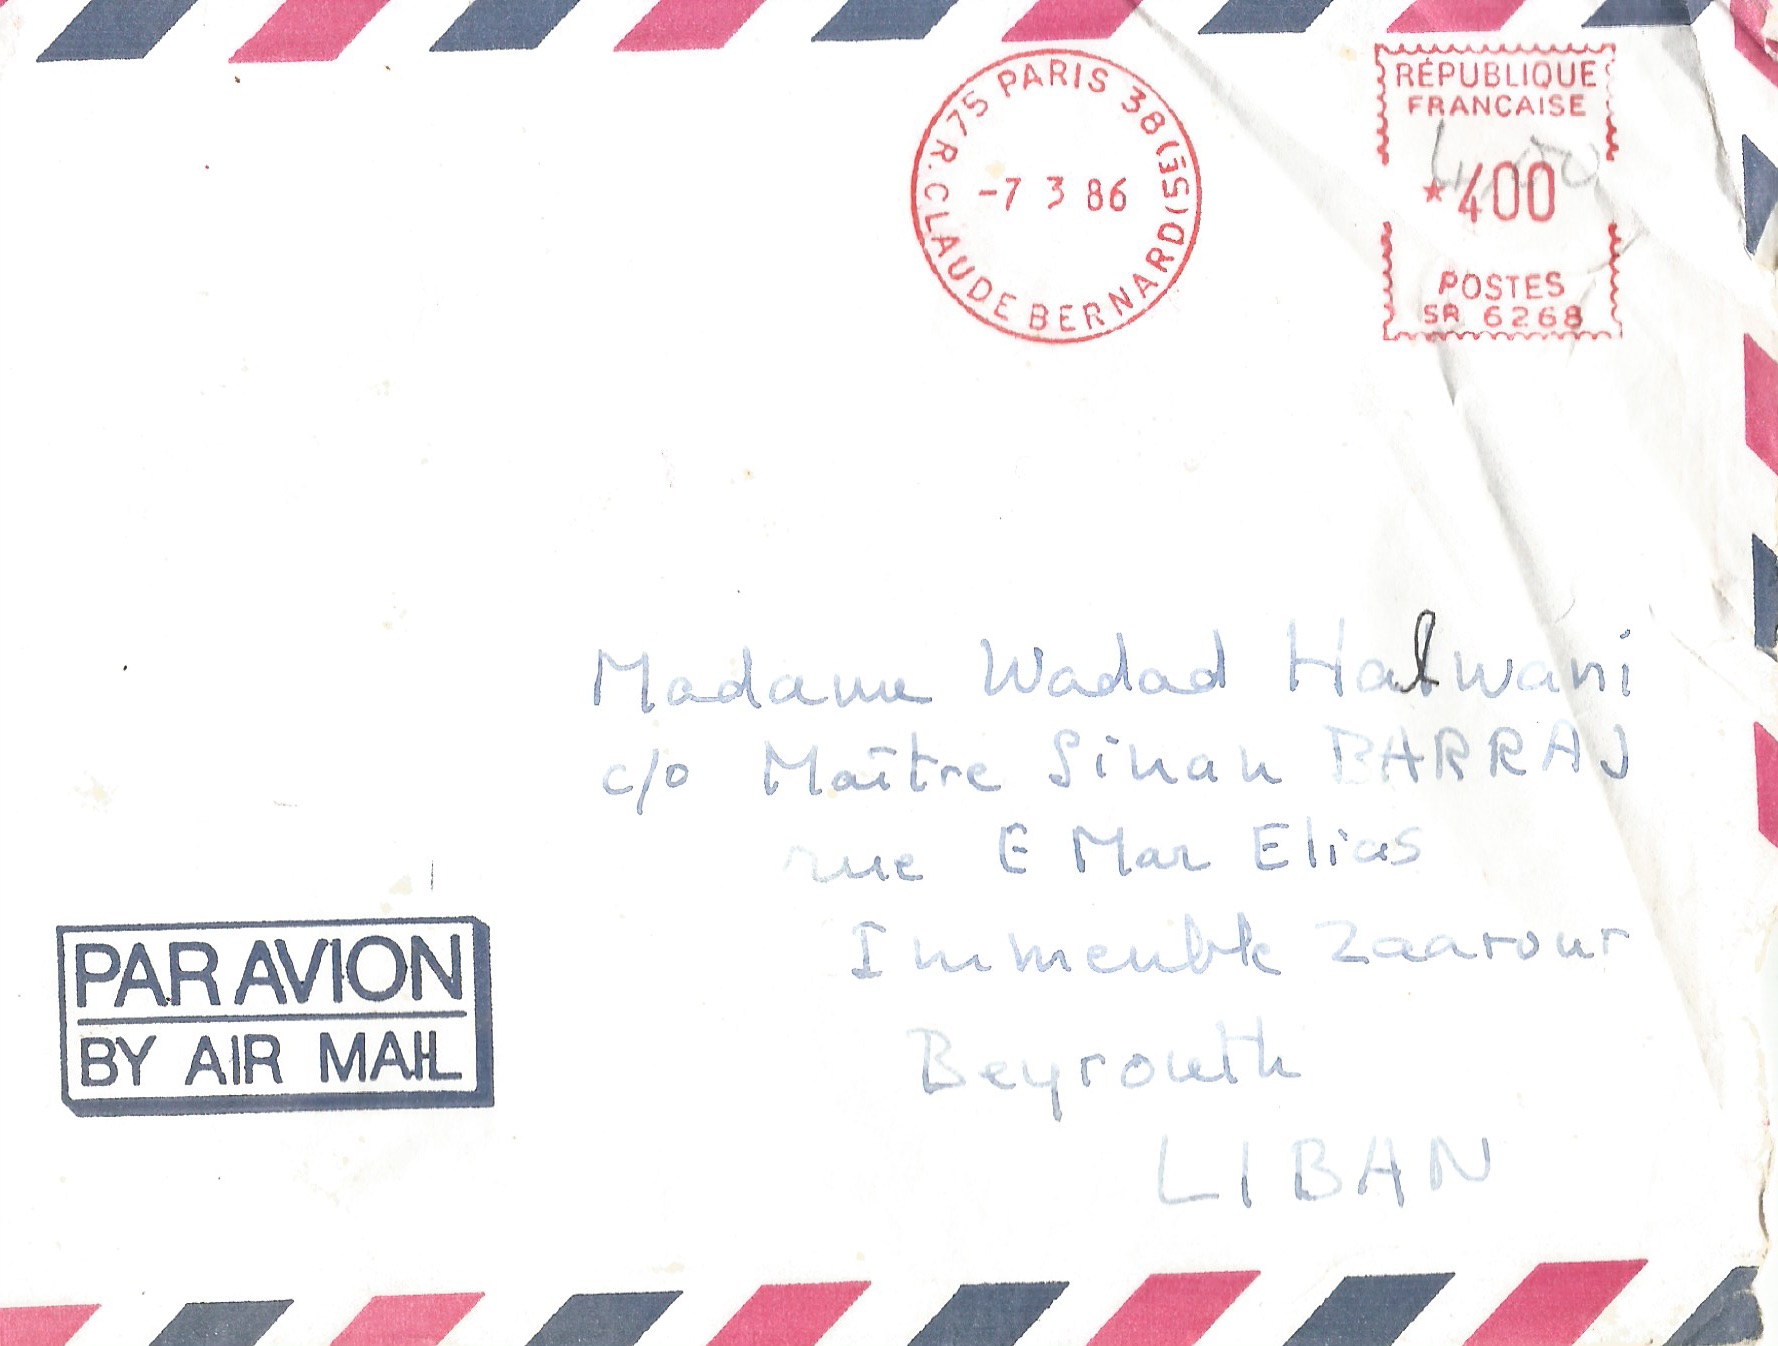 R. 75 PARIS 38 (5È) R. CLAUDE BERNARD (5È)
-7 3 86
RÉPUBLIQUE
FRANCAISE
4,00
*400
POSTES
SR 6268
Madame Wadad Halwani
c/o Maître Sinan BARRAJ
rue E Mar Elias
Immeuble Zaarour
Beyrouth
LIBAN
PAR AVION
BY AIR MAIL